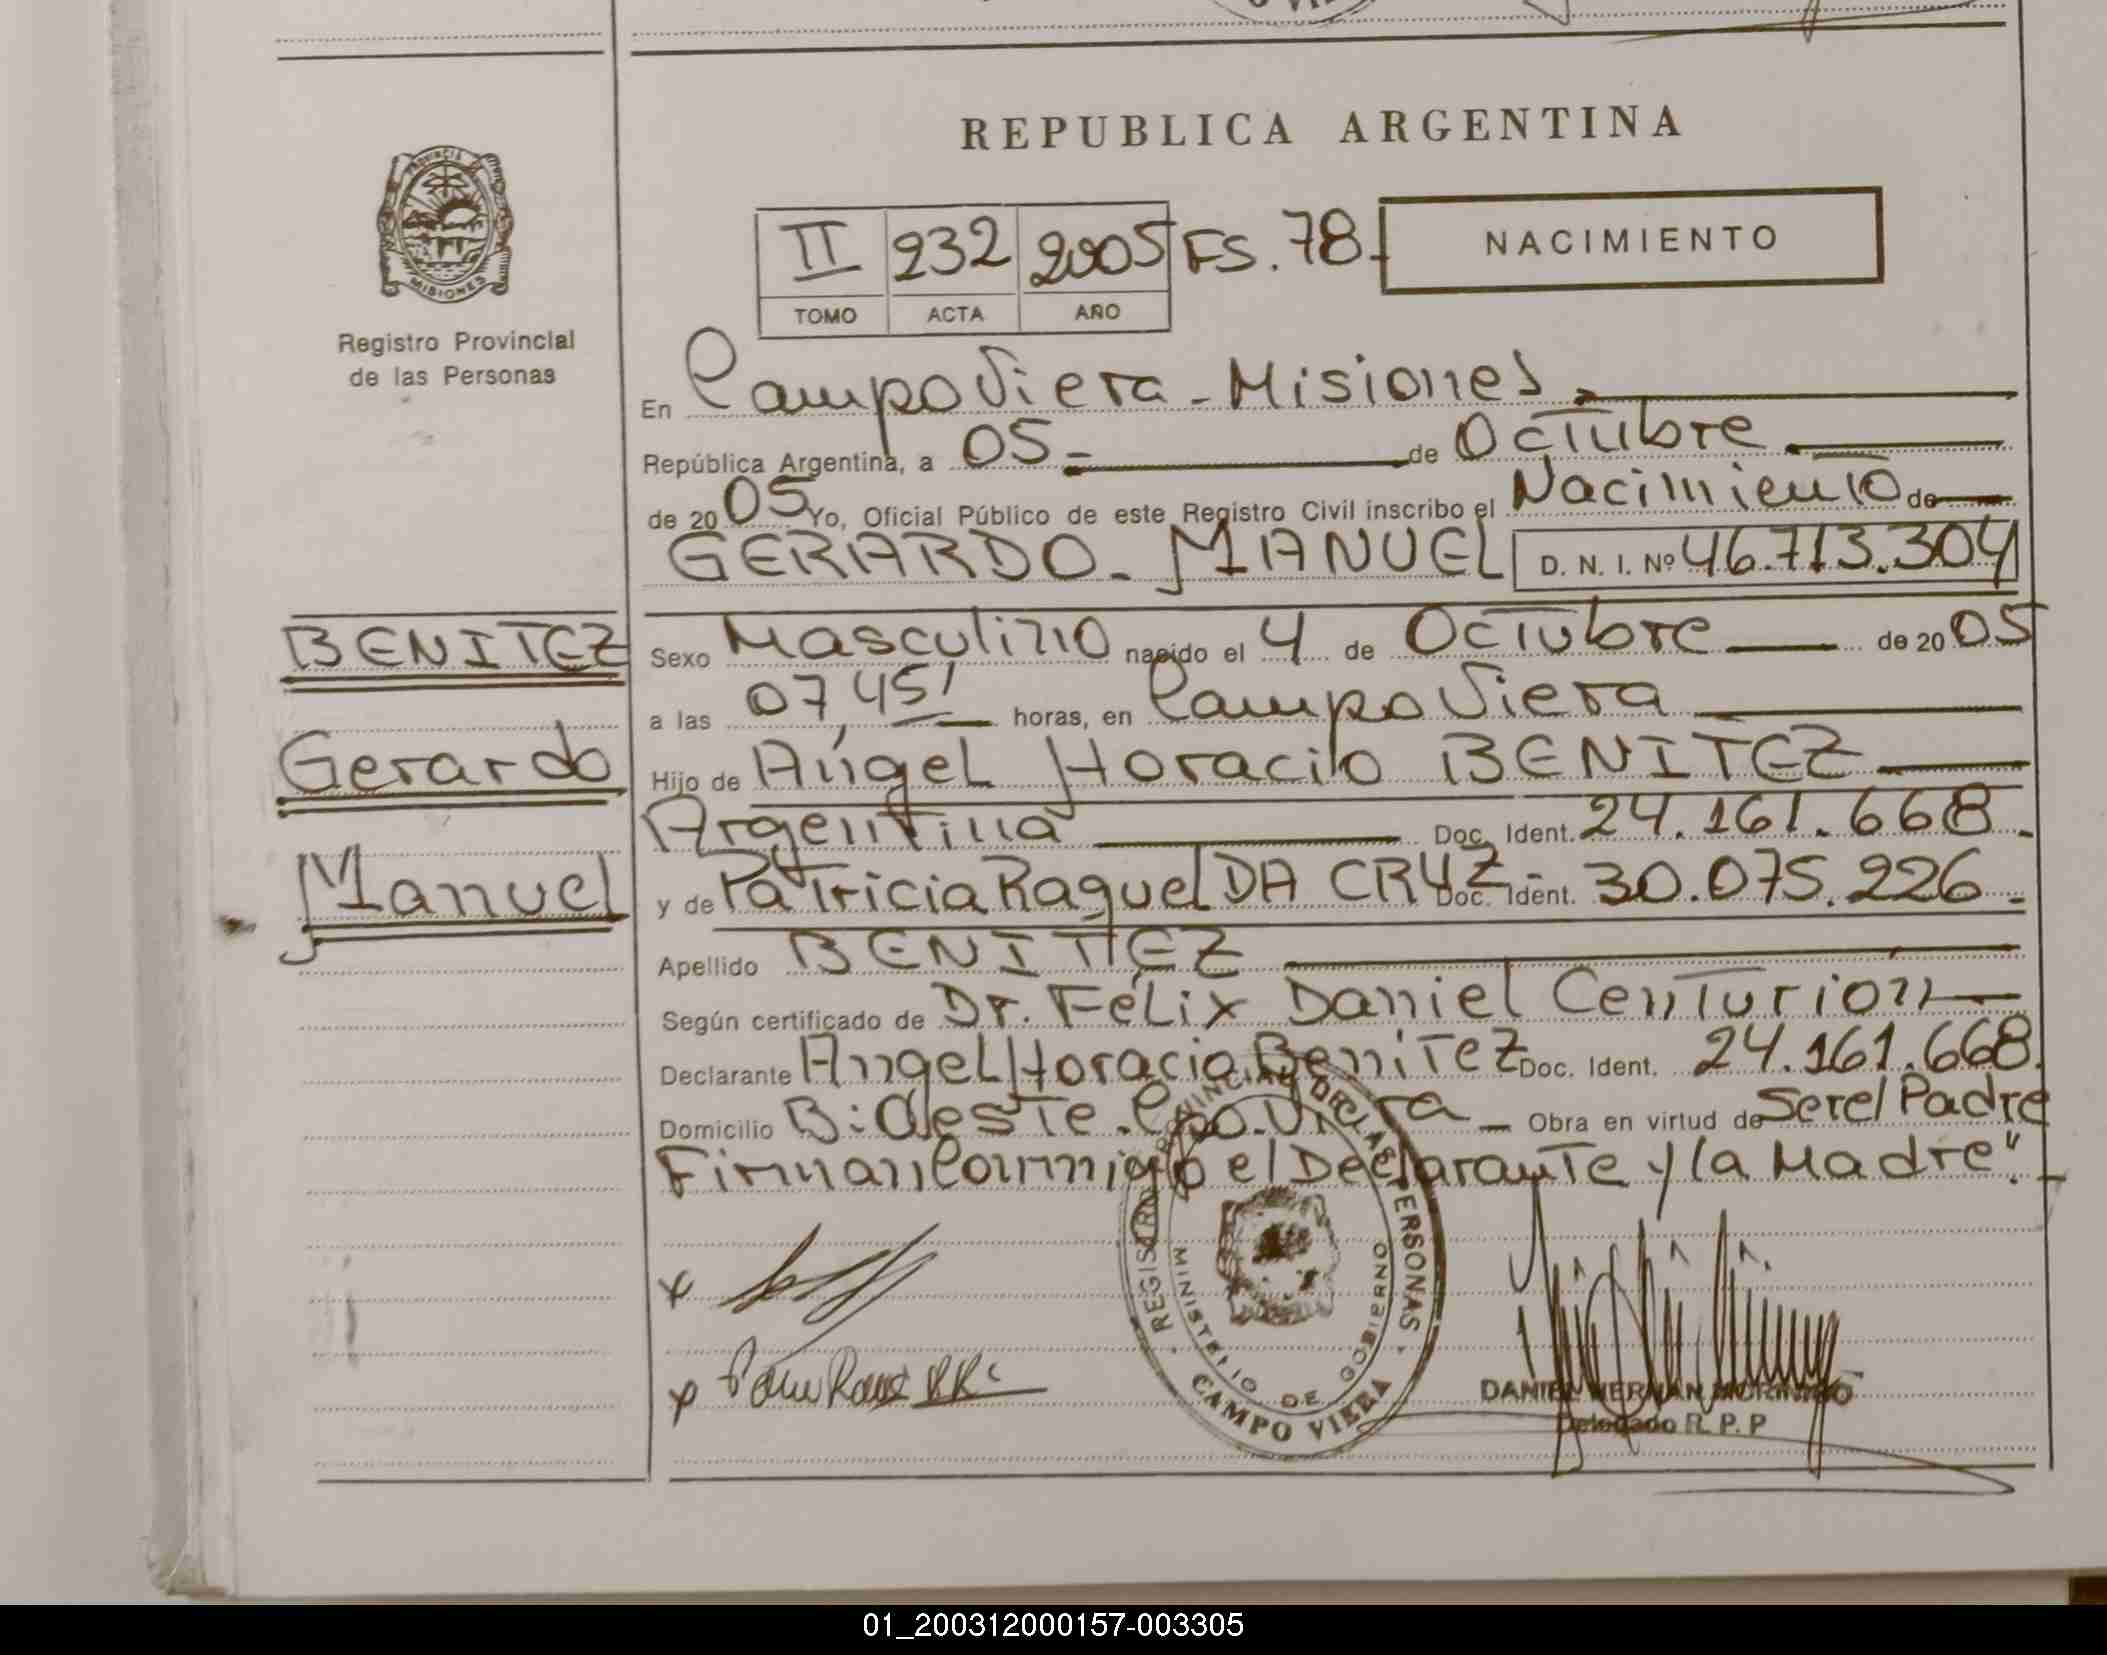 REPUBLICA ARGENTINA
PROVINCIA DE MISIONES
Registro Provincial
de las Personas
II 232 2005 FS. 78.-
TOMO ACTA AÑO
NACIMIENTO
En Campo Viera - Misiones.
República Argentina, a 05.- de Octubre
de 2005 Yo, Oficial Público de este Registro Civil inscribo el Nacimiento de
GERARDO - MANUEL D. N. I. Nº 46.713.304
BENITEZ
Gerardo
Manuel
Sexo Masculino nacido el 4 de Octubre de 2005
a las 07,45' horas, en Campo Viera
Hijo de Angel Horacio BENITEZ
Argentina Doc. Ident. 24.161.668.-
y de Patricia Raquel DA CRUZ - Doc. Ident. 30.075.226.-
Apellido BENITEZ
Según certificado de Dr. Félix Daniel Centurion
Declarante Angel Horacio Benitez Doc. Ident. 24.161.668.
Domicilio B: Oeste. Cpo. Viera - Obra en virtud de Ser el Padre
Firman Conmigo el Declarante y la Madre".-
x
x
REGISTRO PROVINCIAL DE LAS PERSONAS
MINISTERIO DE GOBIERNO
CAMPO VIERA
DANIEL HERNAN MORINIGO
Delegado R. P. P
01_200312000157-003305